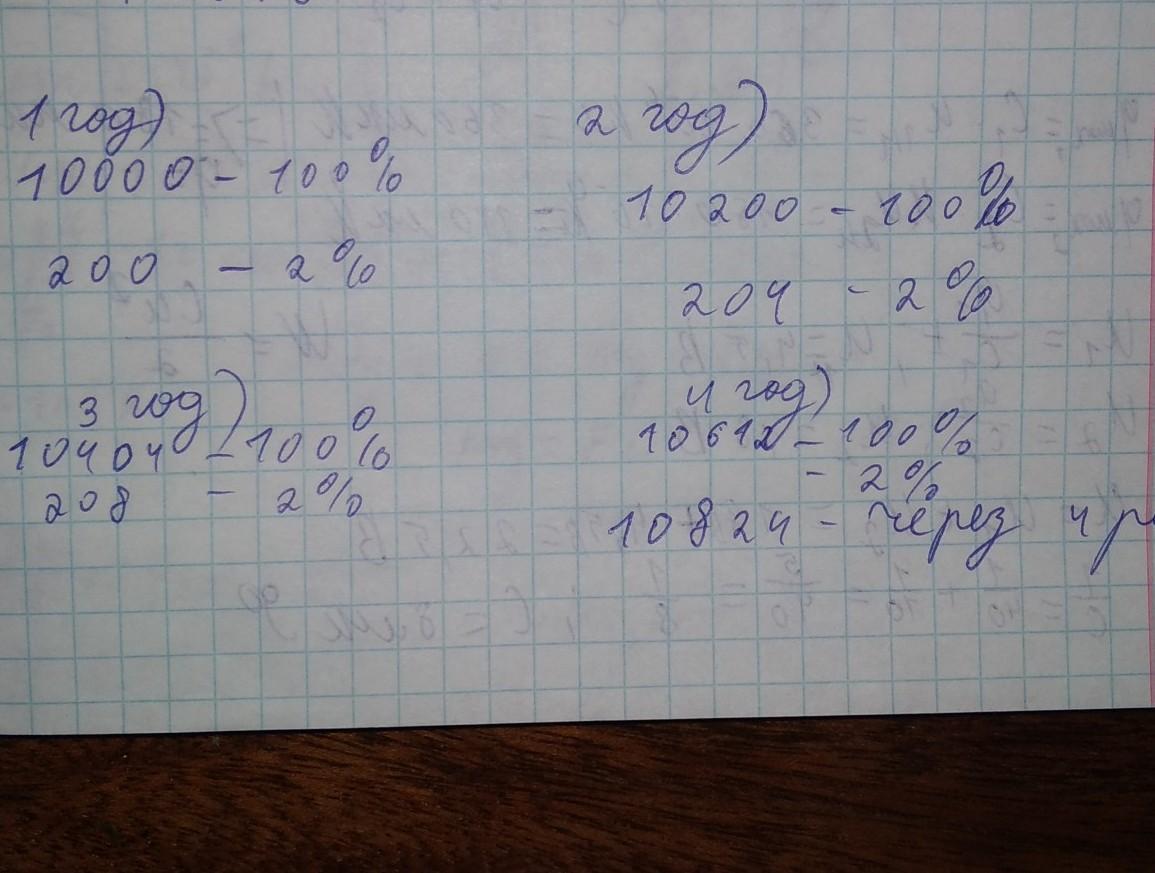 1 год)
10000 - 100%
200 - 2%
2 год)
10200 - 100%
204 - 2%
3 год)
10404 - 100%
208 - 2%
4 год)
10612 - 100%
- 2%
10824 - через 4